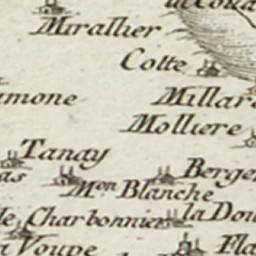 Mirallier
Cotte
Millar
Molliere
Tanay
Berge
M.on Blanche
Charbonnier
la Dou
Voupe
Fla